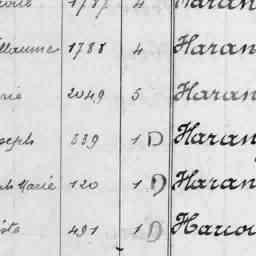 1787 4 Haran
illaume 1788 4 Haran
rie 2049 5 Haran
oseph 339 1 D Haran
Marie 120 1 D Haran
491 1 D Harcou